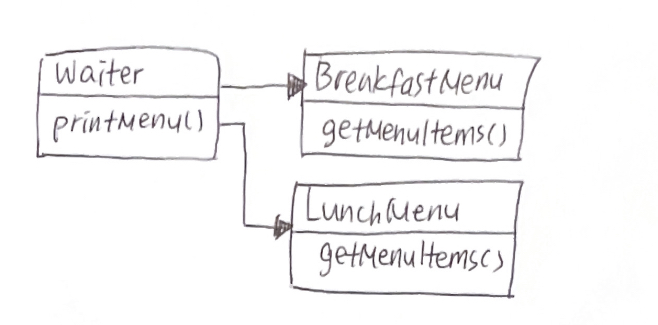 Waiter
printMenu()
BreakfastMenu
getMenuItems()
LunchMenu
getMenuItems()